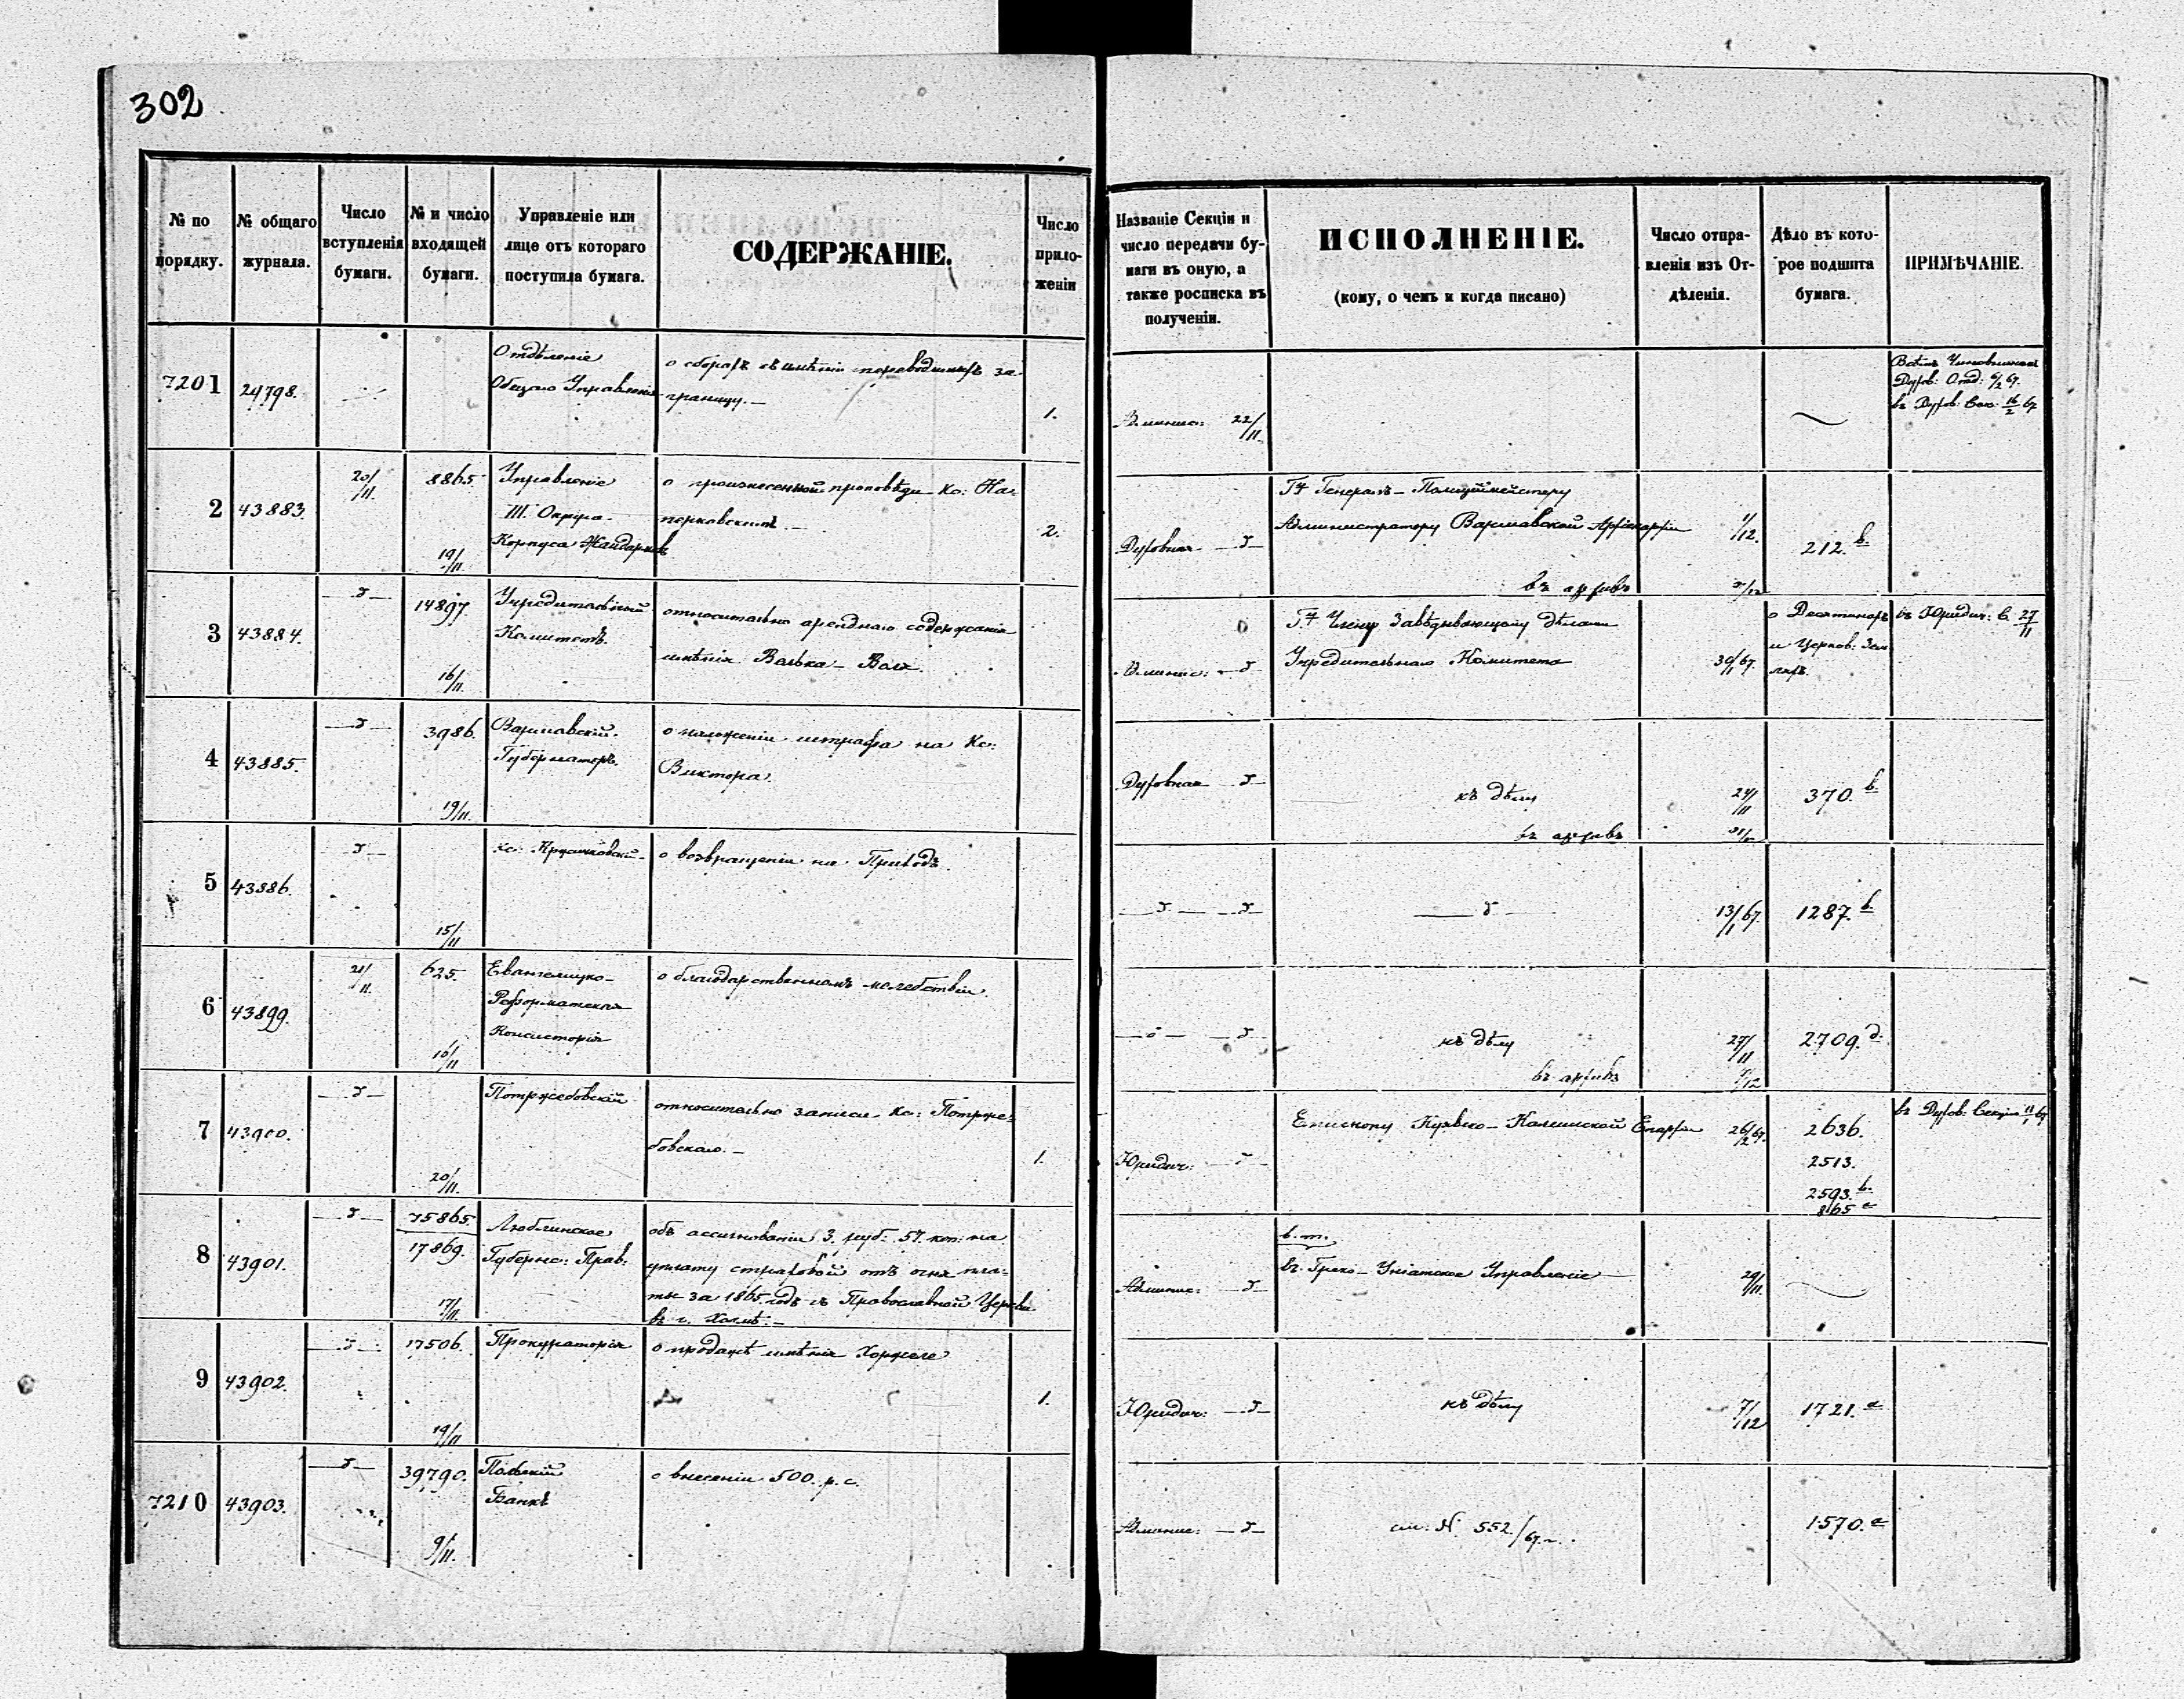 302
№ по порядку.
№ общаго журнала.
Число вступленія бумаги.
№ и число входящей бумаги.
Управленіе или лице отъ котораго поступила бумага.
СОДЕРЖАНІЕ.
Число приложеній
Названіе Секціи и число передачи бумаги въ оную, а также росписка въ полученіи.
ИСПОЛНЕНІЕ.
(кому, о чемъ и когда писано)
Число отправленія изъ Отдѣленія.
Дѣло въ которое подшита бумага.
ПРИМѢЧАНІЕ.
7201
Отдѣленіе
Общаго Управленія
о сборахъ съ имѣній переводимыхъ за
границу. —
1.
Админис: 22/11.
2
43883.
20/11.
8865.
19/11.
Управленіе
III. Округа
Корпуса Жандармовъ
о произнесенной проповѣди Кс:
2.
Духовная
Гу Генералъ-Полицiймейстеру
Администратору Варшавской Архіепархіи
въ архивъ
1/12.
212. в.
3
43884.
14897.
16/11.
Учредительный
Комитетъ.
относительно аренднаго содержанія
имѣнія Валька-
Админис:
Гу Члену Завѣдывающему дѣлами
Учредительнаго Комитета
30/1 67.
о Десятинахъ
и Церков: Зем
ляхъ.
въ Юридич: С. 27/11
4
43885.
3986.
19/11.
Варшавскій
Губернаторъ.
о наложеніи штрафа на Кс:
Виктора.
Духовная
къ дѣлу
въ архивъ
24/11
370. в.
5
43886.
15/11
кс:
о возвращеніи на Приходъ.
13/1 67.
1287. в.
6
43899.
21/11.
625.
Евангелицко-
Реформатская
Консисторія
о благодарственномъ молебствіи.
къ дѣлу
въ архивъ
27/11
2709. д.
7
43900.
20/11.
Потржебовскій
относительно записи Кс: Потрже-
бовскаго. —
1.
Юридич:
Епископу Куявско-Калишской Епархіи
26/2 67.
2636.
2513.
2593. в.
865 а
въ Духов: Секцію
8
43901.
75865.
17869.
17/11.
Люблинское
Губернс: Прав:
объ ассигнованіи 3. руб. 57. коп: на
уплату страховой отъ огня пла-
ты за 1865 годъ съ Православной Церкви
въ г. Холмѣ. —
Админис:
в. т.
въ Греко-Уніатское Управленіе
29/11.
9
43902.
17506.
19/11
Прокураторія
о продажѣ имѣнія Хоржеле
1.
Юридич:
къ дѣлу
7/12
1721. а
7210
43903.
39790.
9/11.
Польскій
Банкъ
о внесеніи 500. р. с.
Админис:
см: N. 552/67. г.
1570. а